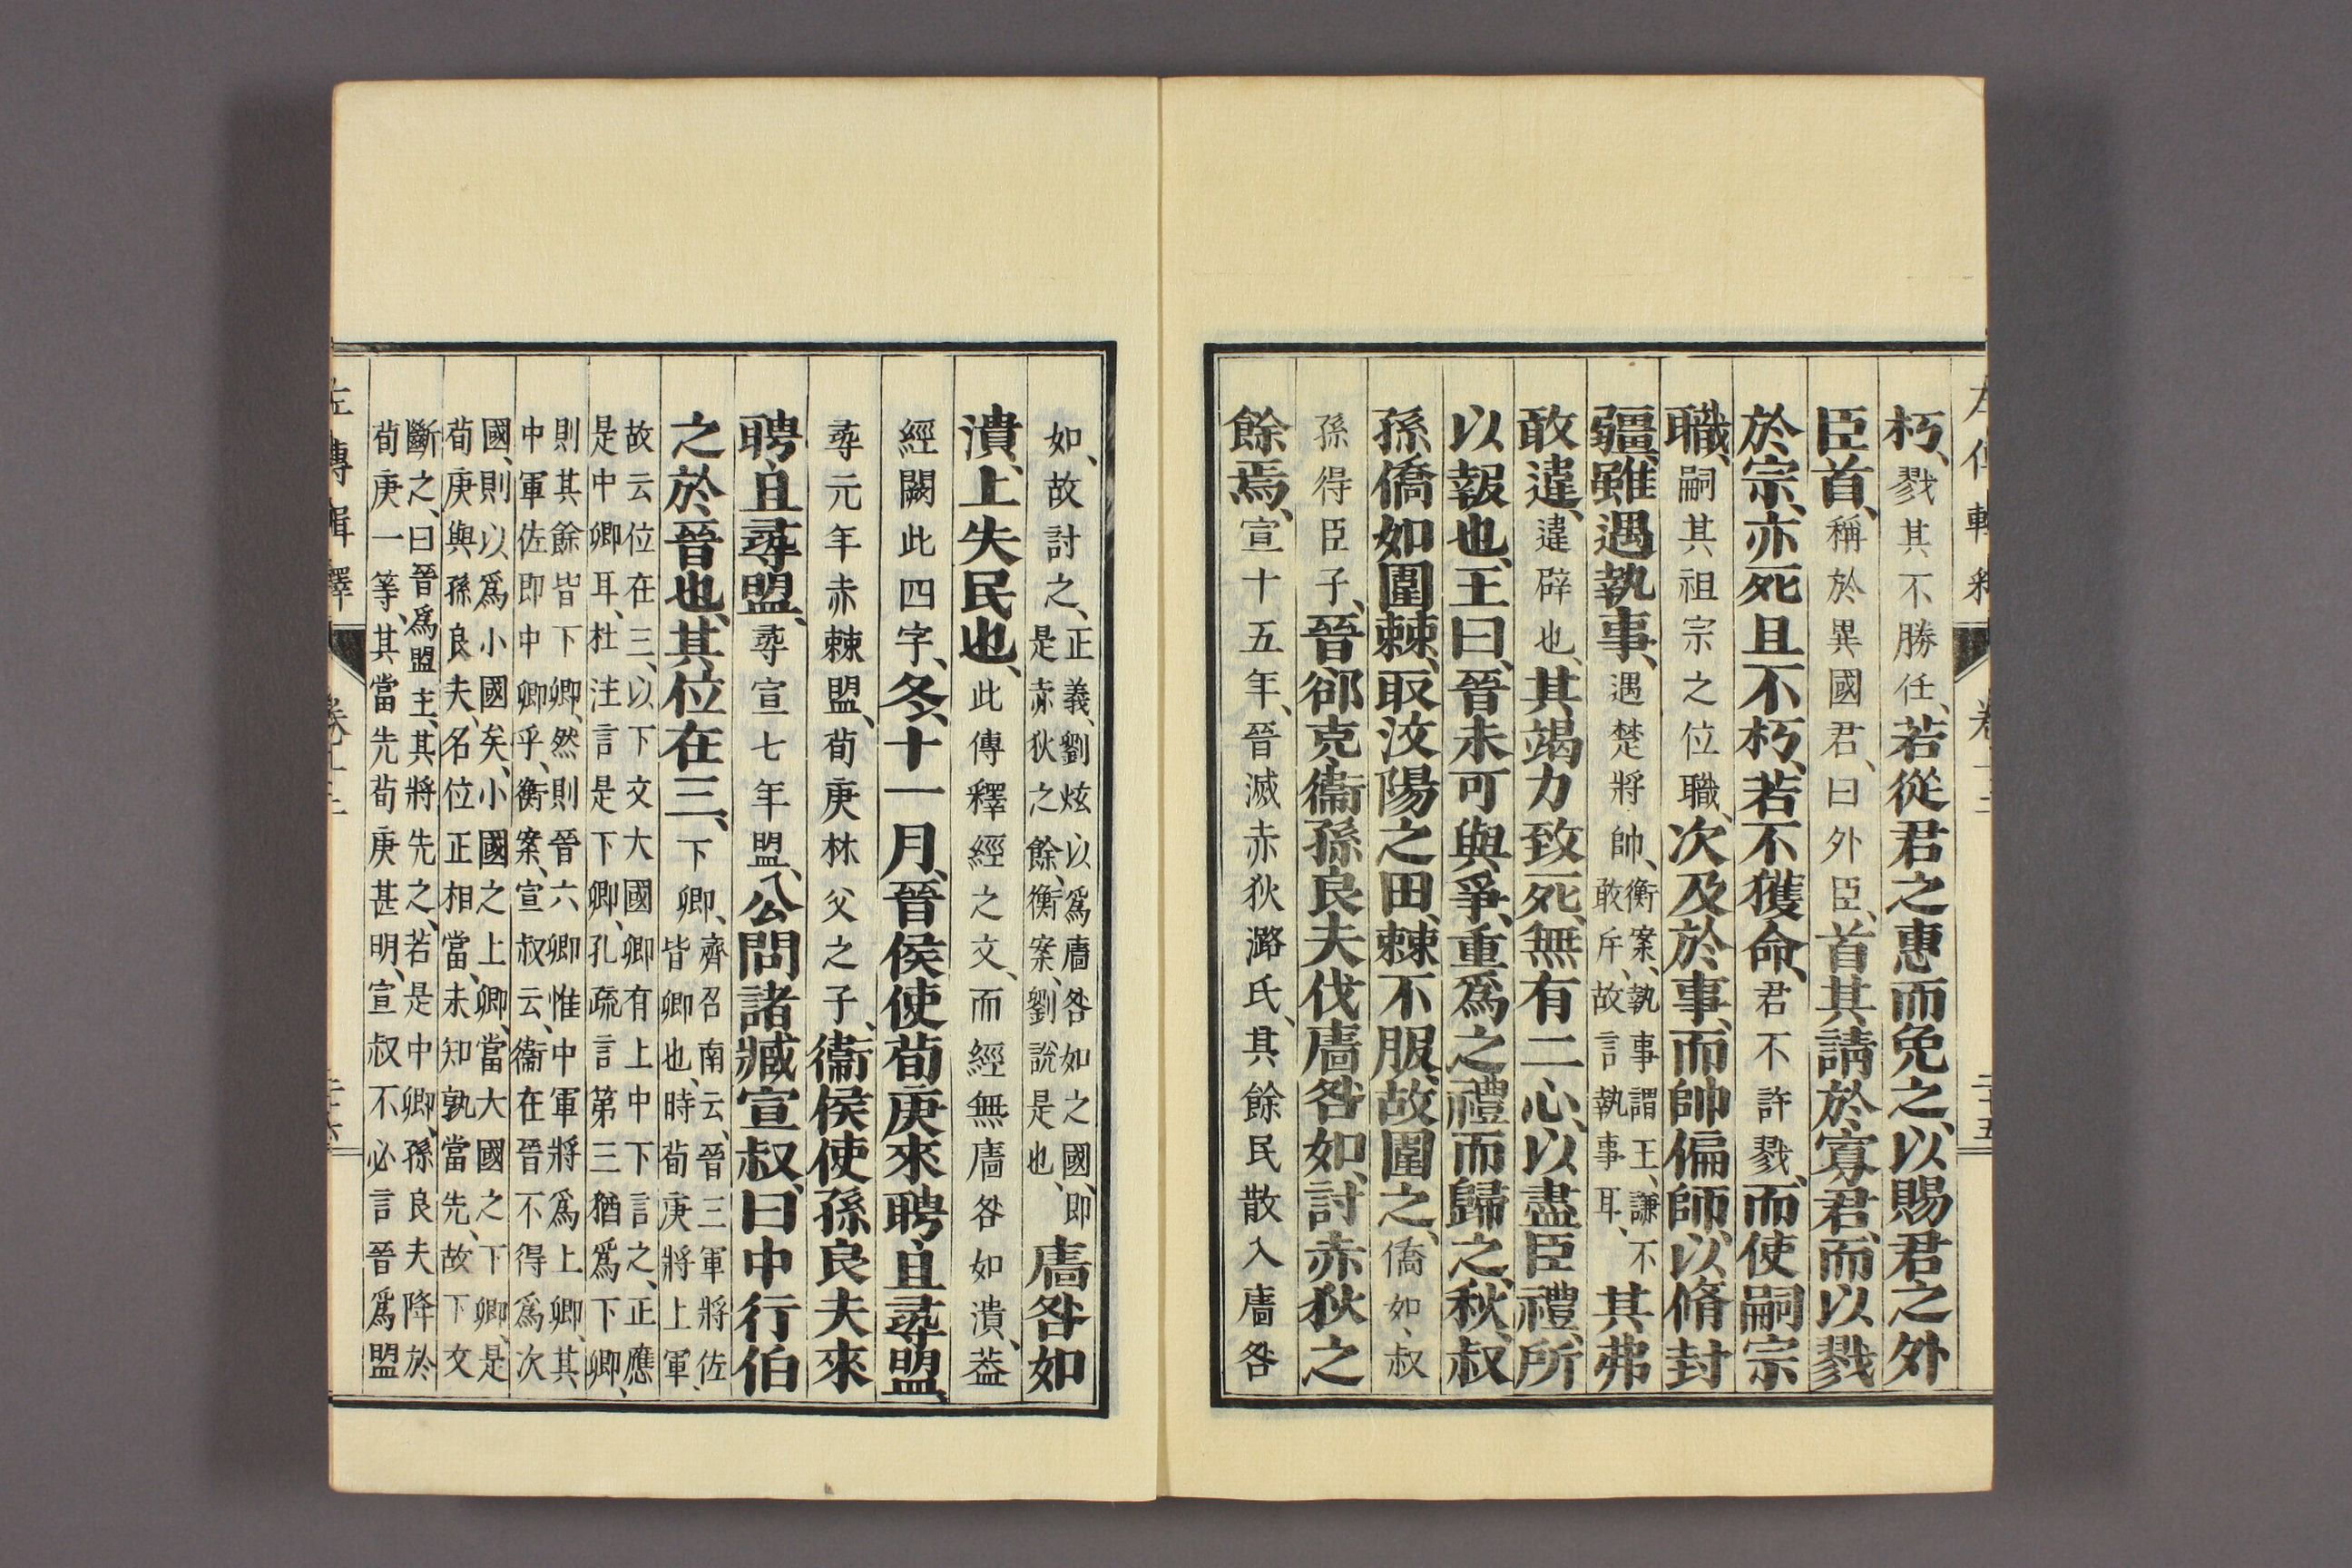 左傳輯釋 卷十二 二十五
朽、戮其不勝任、若從君之惠而免之、以賜君之外
臣首、稱於異國君、曰外臣、首其請於寡君、而以戮
於宗、亦死且不朽、若不獲命、君不許戮、而使嗣宗
職、嗣其祖宗之位職、次及於事、而帥偏師、以脩封
疆、雖遇執事、遇楚將帥、衡案、執事謂王、謙不敢斥、故言執事耳、其弗
敢違、違辟也、其竭力致死、無有二心、以盡臣禮、所
以報也、王曰、晉未可與爭、重爲之禮而歸之、秋、叔
孫僑如圍棘、取汶陽之田、棘不服、故圍之、僑如、叔
孫得臣子、晉郤克、衞孫良夫伐廧咎如、討赤狄之
餘焉、宣十五年、晉滅赤狄潞氏、其餘民散入廧咎
如、故討之、正義、劉炫以爲廧咎如之國、即是赤狄之餘、衡案、劉說是也、廧咎如
潰、上失民也、此傳釋經之文、而經無廧咎如潰、葢
經闕此四字、冬、十一月、晉侯使荀庚來聘、且尋盟、
尋元年赤棘盟、荀庚林父之子、衞侯使孫良夫來
聘、且尋盟、尋宣七年盟、公問諸臧宣叔、曰、中行伯
之於晉也、其位在三、下卿、齊召南云、晉三軍將佐皆卿也、時荀庚將上軍、
故云位在三、以下文大國卿有上中下言之、正應
是中卿耳、杜注言是下卿、孔疏言第三猶爲下卿、
則其餘皆下卿、然則晉六卿惟中軍將爲上卿、其
中軍佐即中卿乎、衡案、宣叔云、衞在晉不得爲次
國、則以爲小國矣、小國之上卿、當大國之下卿、是
荀庚與孫良夫、名位正相當、未知孰當先、故下文
斷之、曰晉爲盟主、其將先之、若是中卿、孫良夫降於
荀庚一等、其當先荀庚甚明、宣叔不必言晉爲盟
左傳輯釋 卷十二 二十六